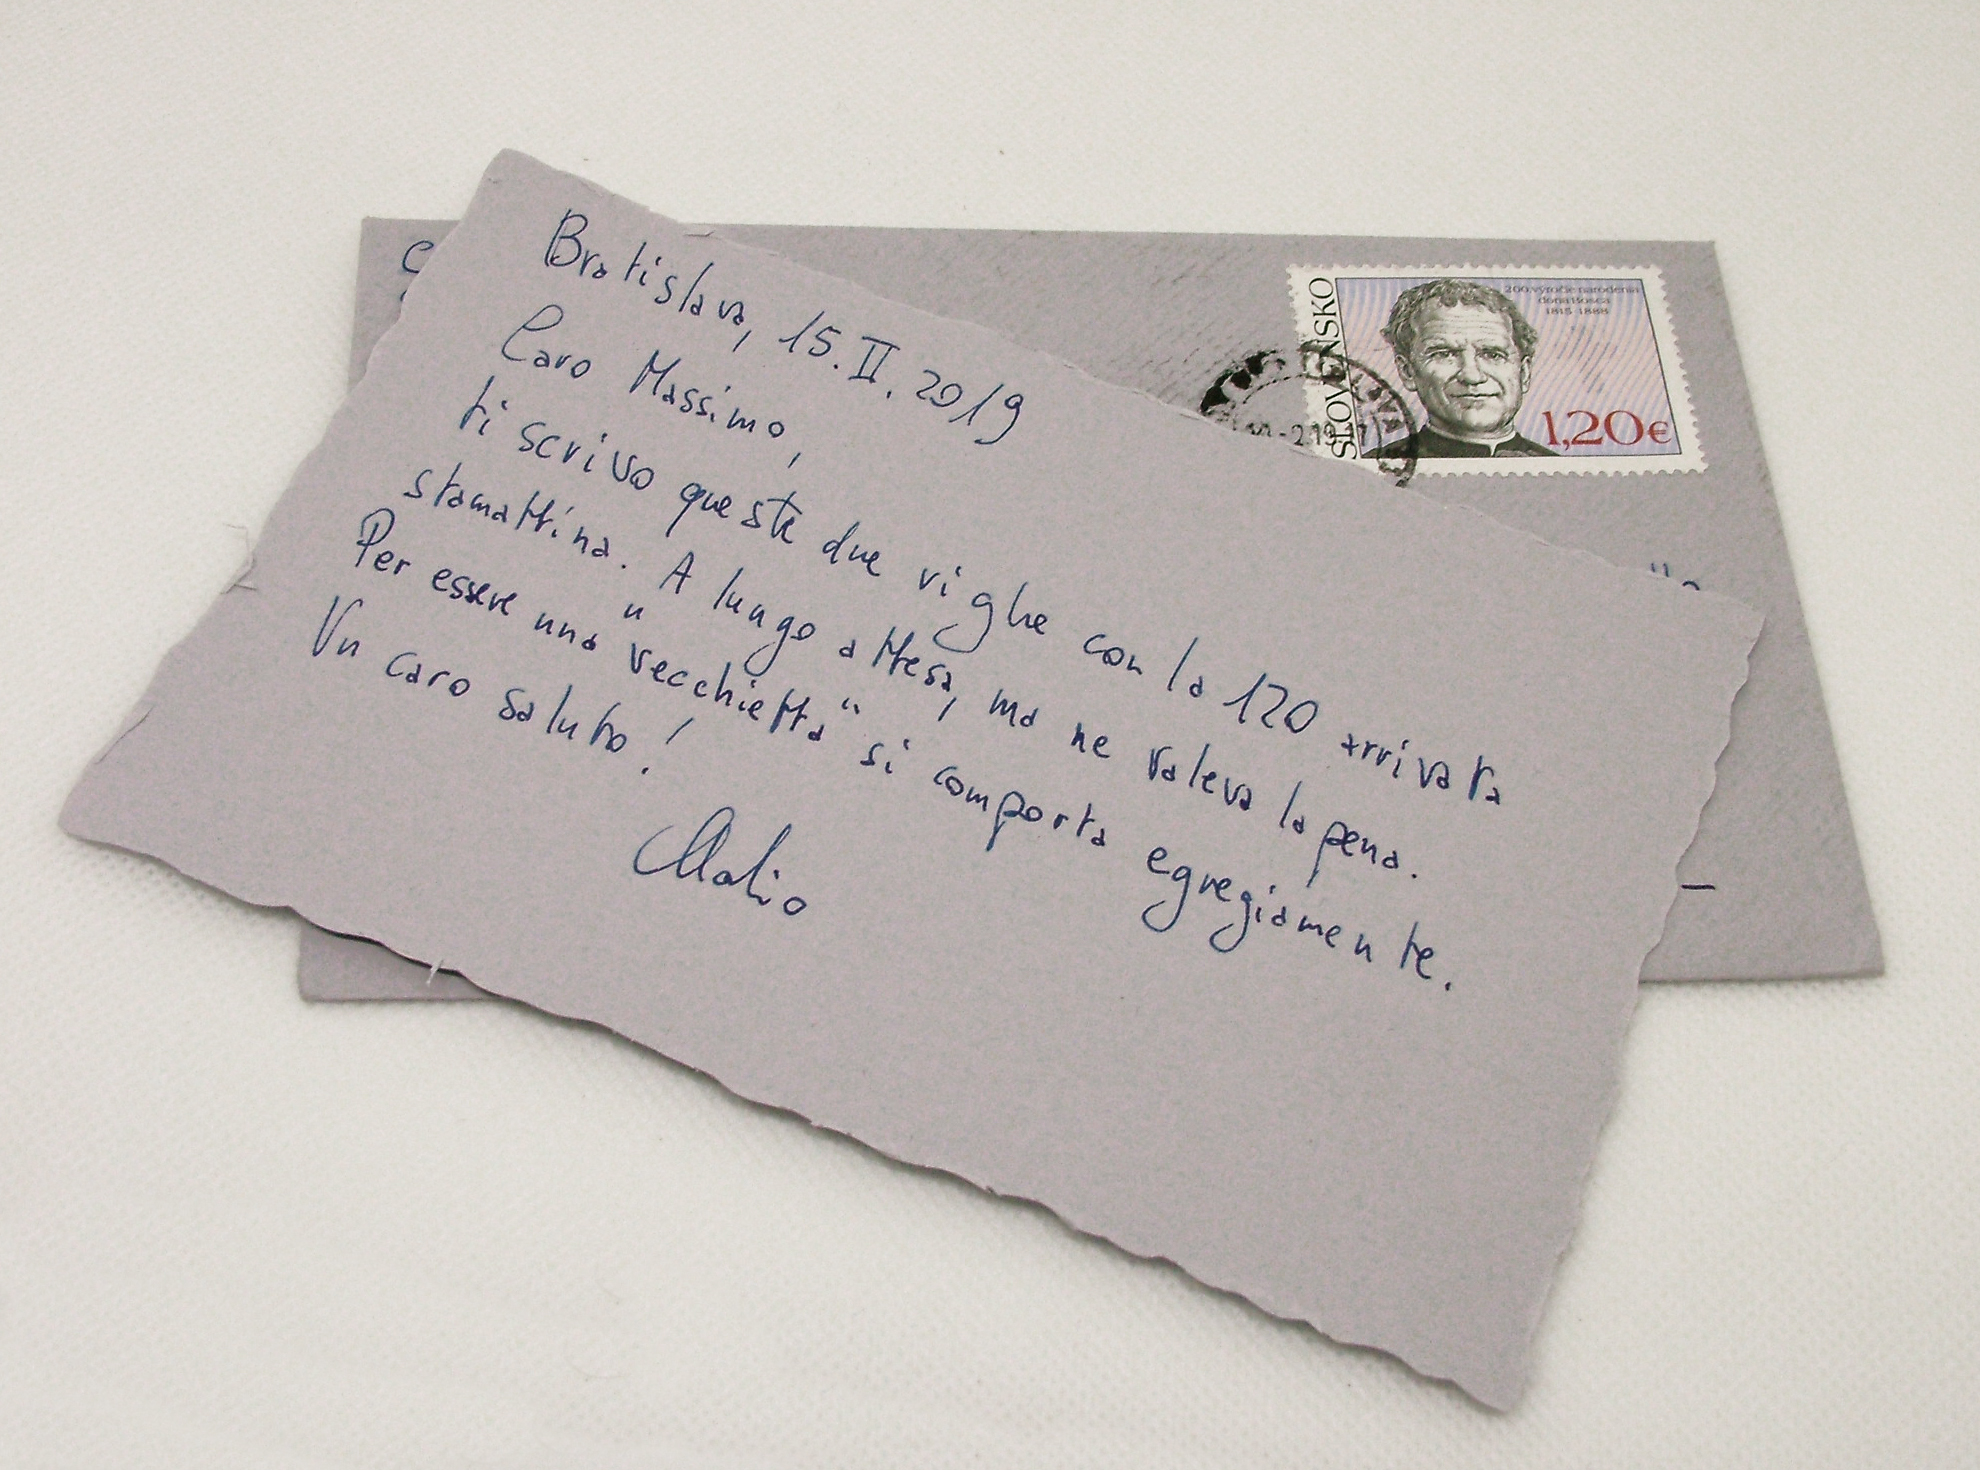 Bratislava, 15.II.2019
Caro Massimo,
ti scrivo queste due righe con la 120 arrivata
stamattina. A lungo attesa, ma ne valeva la pena.
Per essere una "vecchietta" si comporta egregiamente.
Un caro saluto!
SLOVENSKO
200. výročie narodenia
dona Bosca
1815 1888
1,20€